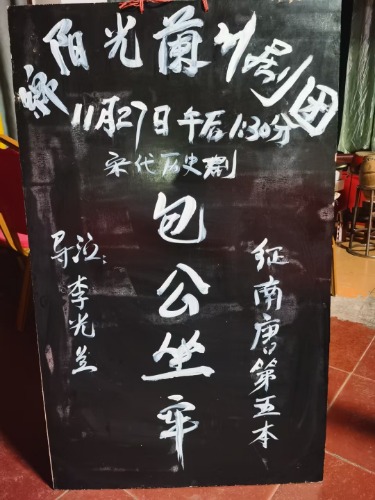 阳光兰川剧团
11月27日午后1:30分
宋代历史剧
包公坐牢
征南唐第五本
导注:李光兰